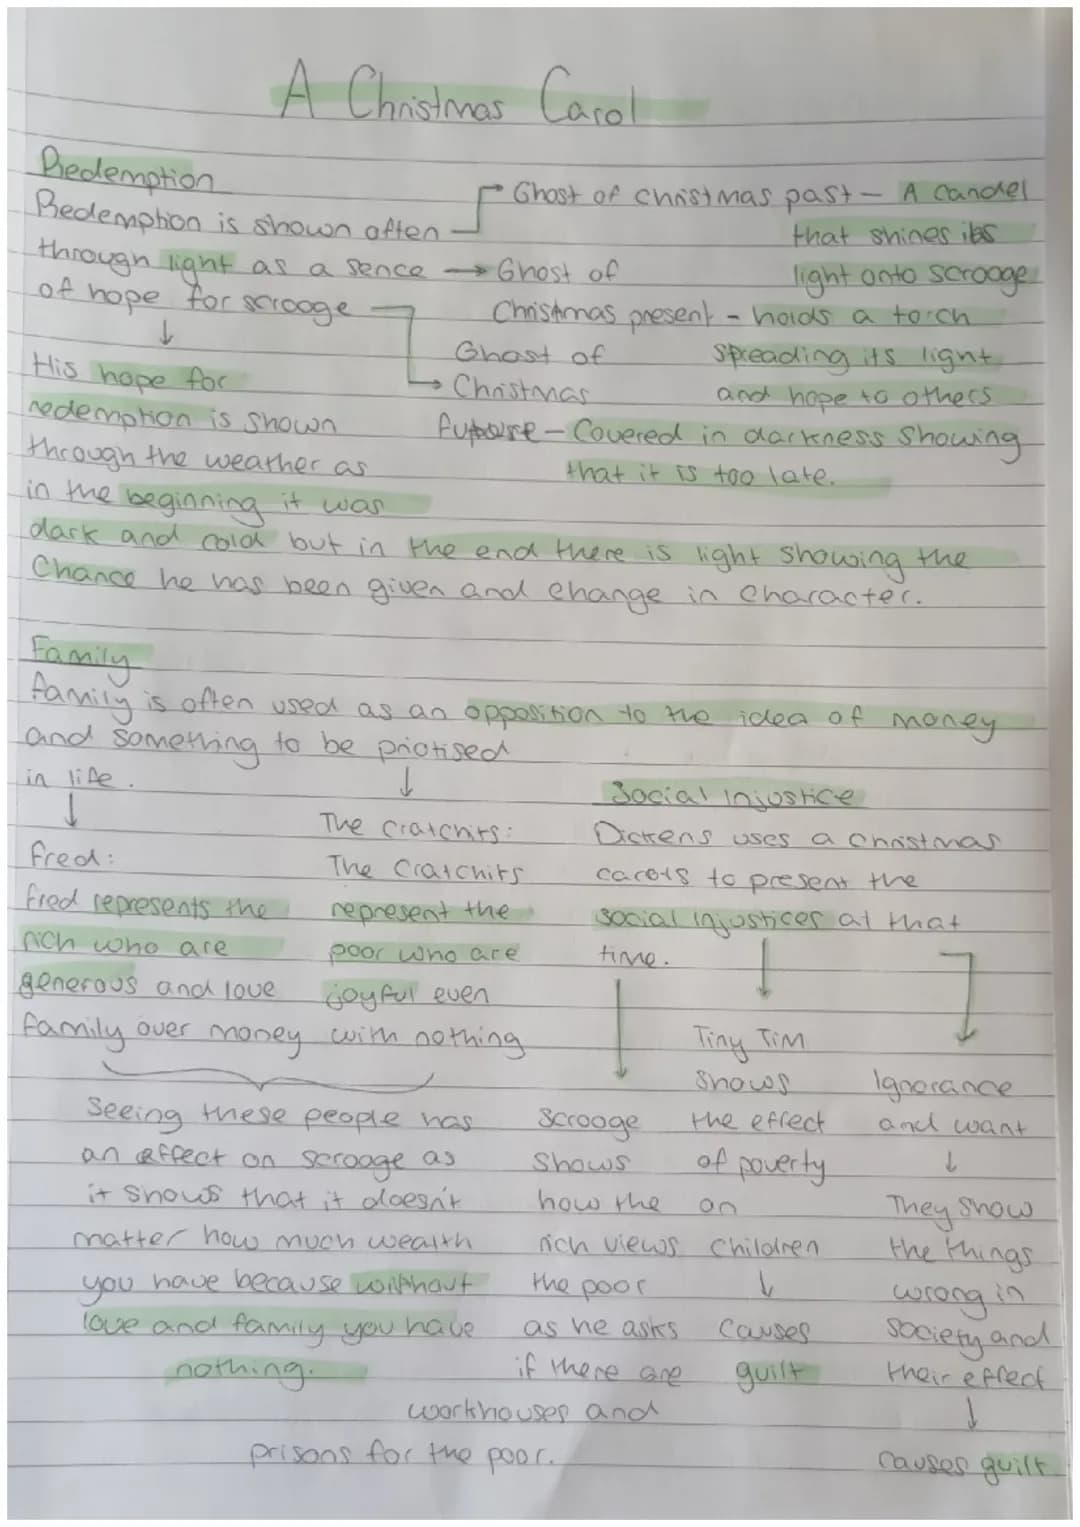 A Christmas Carol
Redemption
Redemption is shown often
through light as a sence
of hope for scrooge
Ghost of christmas past - A candel
that shines its
light onto scrooge
Ghost of
Christmas present - holds a torch
spreading its light
and hope to others
Ghost of
Christmas
future - Covered in darkness showing
that it is too late.
His hope for
redemption is shown
through the weather as
in the beginning it was
dark and cold but in the end there is light showing the
Chance he has been given and change in character.
Family
family is often used as an opposition to the idea of money
and something to be priotised
in life.
Fred:
Fred represents the
rich who are
generous and love
family over money
The Cratchits:
The Cratchits
represent the
poor who are
joyful even
with nothing
Seeing these people has
an effect on scrooge as
it shows that it doesn't
matter how much wealth
you have because without
love and family you have
nothing.
Social Injustice
Dickens uses a christmas
carols to present the
social injustices at that
time.
Scrooge
shows
how the
rich views
the poor
as he asks
if there are
workhouses and
prisons for the poor.
Tiny Tim
shows
the effect
of poverty
on
children
causes
guilt
Ignorance
and want
They show
the things
wrong in
society and
their effect
causes guilt